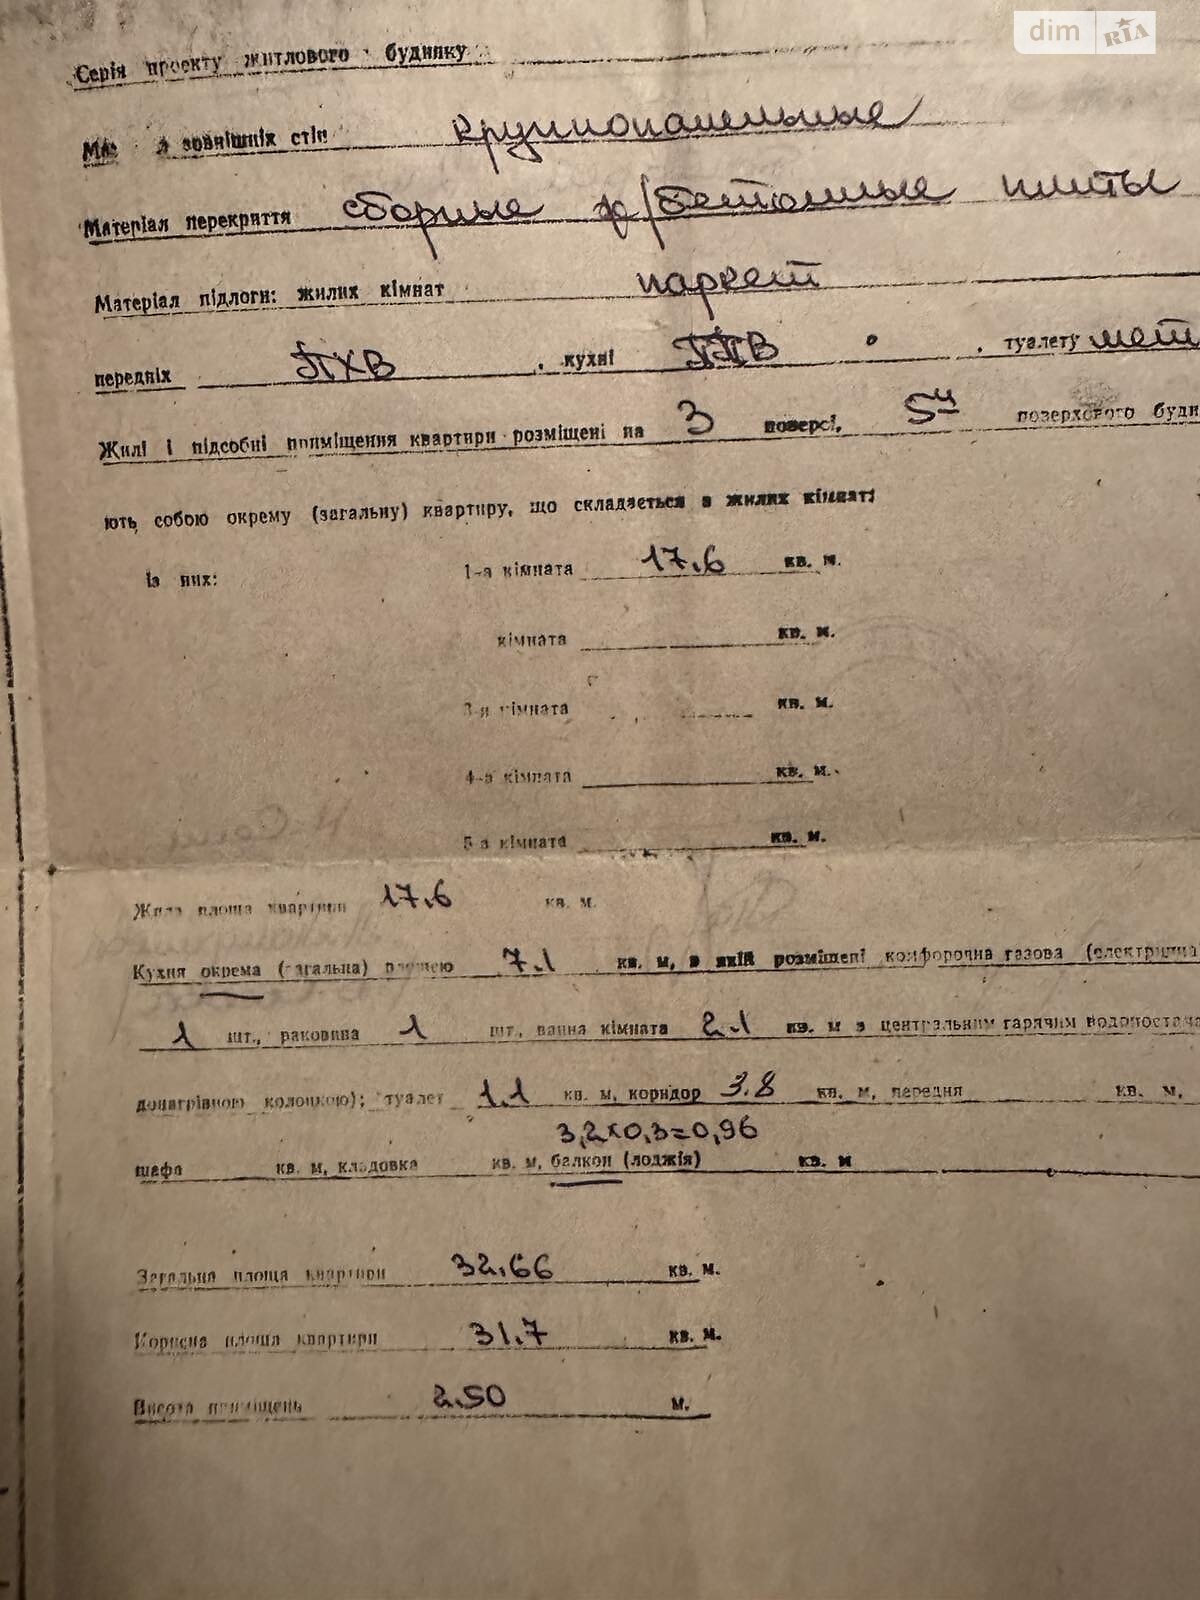 dim RIA
Серія проекту житлового будинку
зовнішніх стін крупнопанельные
Матеріал перекриття сборные ж/бетонные плиты
Матеріал підлоги: жилих кімнат паркет
передніх ПХВ , кухні ПХВ , туалету мет
Жилі і підсобні приміщення квартири розміщені на 3 поверсі, 5ти поверхового буди
ють собою окрему (загальну) квартиру, що складається з жилих кімнат:
із них: 1-а кімната 17.6 кв. м.
кімната кв. м.
3-я кімната кв. м.
4-а кімната кв. м.
5-а кімната кв. м.
Жила площа квартири 17.6 кв. м.
Кухня окрема (загальна) площею 7.1 кв. м, в якій розміщені конфорочна газова (електрична
1 шт., раковина 1 шт., ванна кімната 2.1 кв. м з центральним гарячим водопостача
донагрівною колонкою); туалет 1.1 кв. м, коридор 3.8 кв. м, передня кв. м,
3,2х0,3=0,96
шафа кв. м, кладовка кв. м, балкон (лоджія) кв. м
Загальна площа квартири 32.66 кв. м.
Корисна площа квартири 31.7 кв. м.
Висота приміщень 2.50 м.